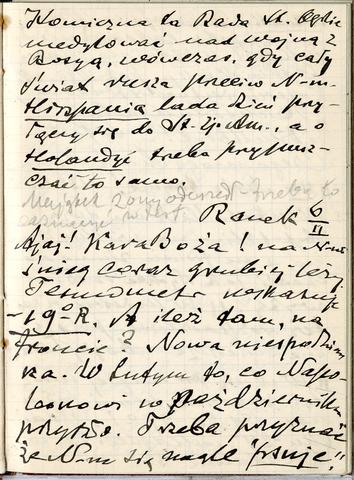 Komiczna ta Rada St. Ogólnie
medytować nad wojną z
Rosyą, wówczas, gdy cały
świat rusza przeciw Nm.
Hiszpania lada dzień przy-
łączy się do St. Zj. Am., a o
Holandyi trzeba przypusz-
czać to samo.
Ranek 6/II
Ajaj! Kara Boża! na
śnieg coraz grubiej leży.
Termometr wskazuje
-19°R. A ileż tam, na
froncie? Nowa niespodzian-
ka. W lutym to, co Napo-
leonowi w październiku
przyszło. Trzeba przyznać
że Nm. się nagle